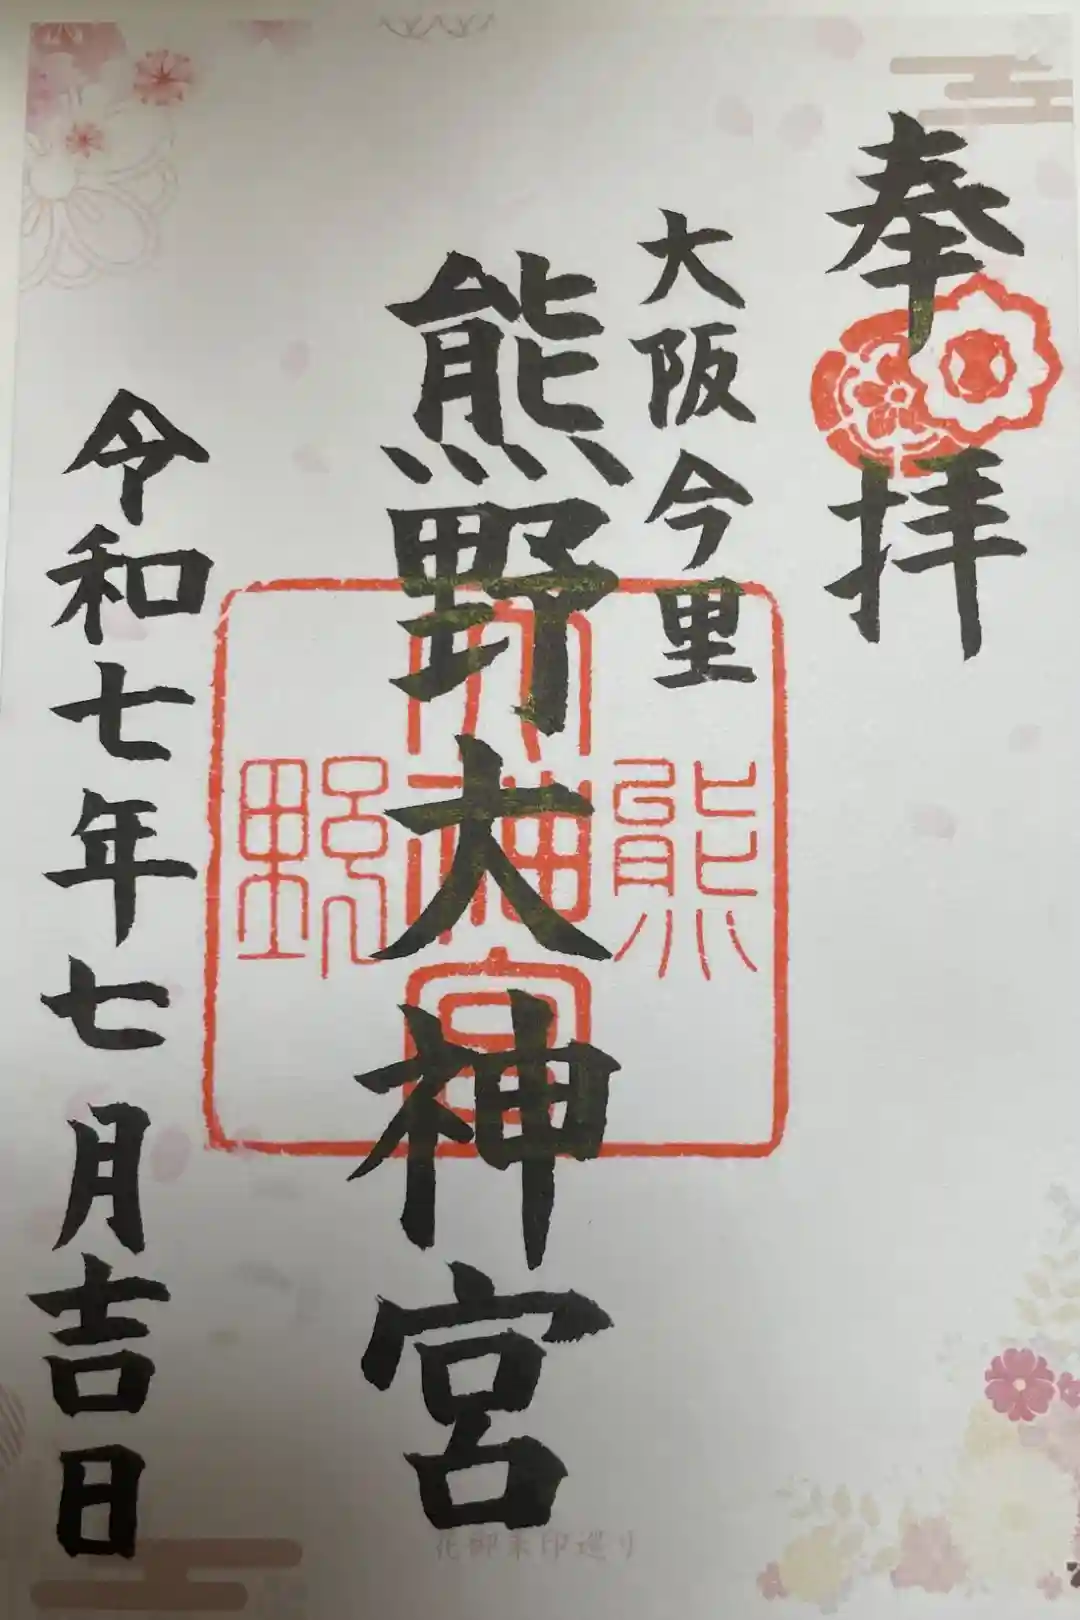 奉拝
大阪今里
熊野大神宮
熊野大神宮
令和七年七月吉日
花御朱印巡り